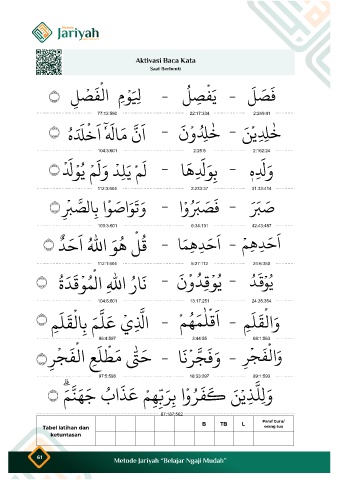 Metode
Jariyah
Aktivasi Baca Kata
Saat Berhenti
فَصَلَ – يَفْصِلُ – لِيَوْمِ الْفَصْلِ
77:13:580 22:17:334 2:249:41
خٰلِدِيْنَ – خٰلِدُوْنَ – اَنَّ مَالَهٗٓ اَخْلَدَهٗ
104:3:601 2:25:5 2:162:24
وَلَدِهٖ – بِوَلَدِهَا – لَمْ يَلِدْ وَلَمْ يُوْلَدْ
112:3:604 2:233:37 31:33:414
صَبَرَ – فَصَبَرُوْا – وَتَوَاصَوْا بِالصَّبْرِ
103:3:601 6:34:131 42:43:487
اَحَدِهِمْ – اَحَدِهِمَا – قُلْ هُوَ اللّٰهُ اَحَدٌ
112:1:604 5:27:112 24:6:350
يُوْقَدُ – يُوْقِدُوْنَ – نَارُ اللّٰهِ الْمُوْقَدَةُ
104:6:601 13:17:251 24:35:354
وَالْقَلَمِ – اَقْلَامَهُمْ – الَّذِيْ عَلَّمَ بِالْقَلَمِ
96:4:597 3:44:55 68:1:563
وَالْفَجْرِ – وَفَجَّرْنَا – حَتّٰى مَطْلَعِ الْفَجْرِ
97:5:598 18:33:297 89:1:593
وَلِلَّذِيْنَ كَفَرُوْا بِرَبِّهِمْ عَذَابُ جَهَنَّمَ
67:187:562
Tabel latihan dan ketuntasan
B TB L
Paraf Guru/ orang tua
61
Metode Jariyah "Belajar Ngaji Mudah"